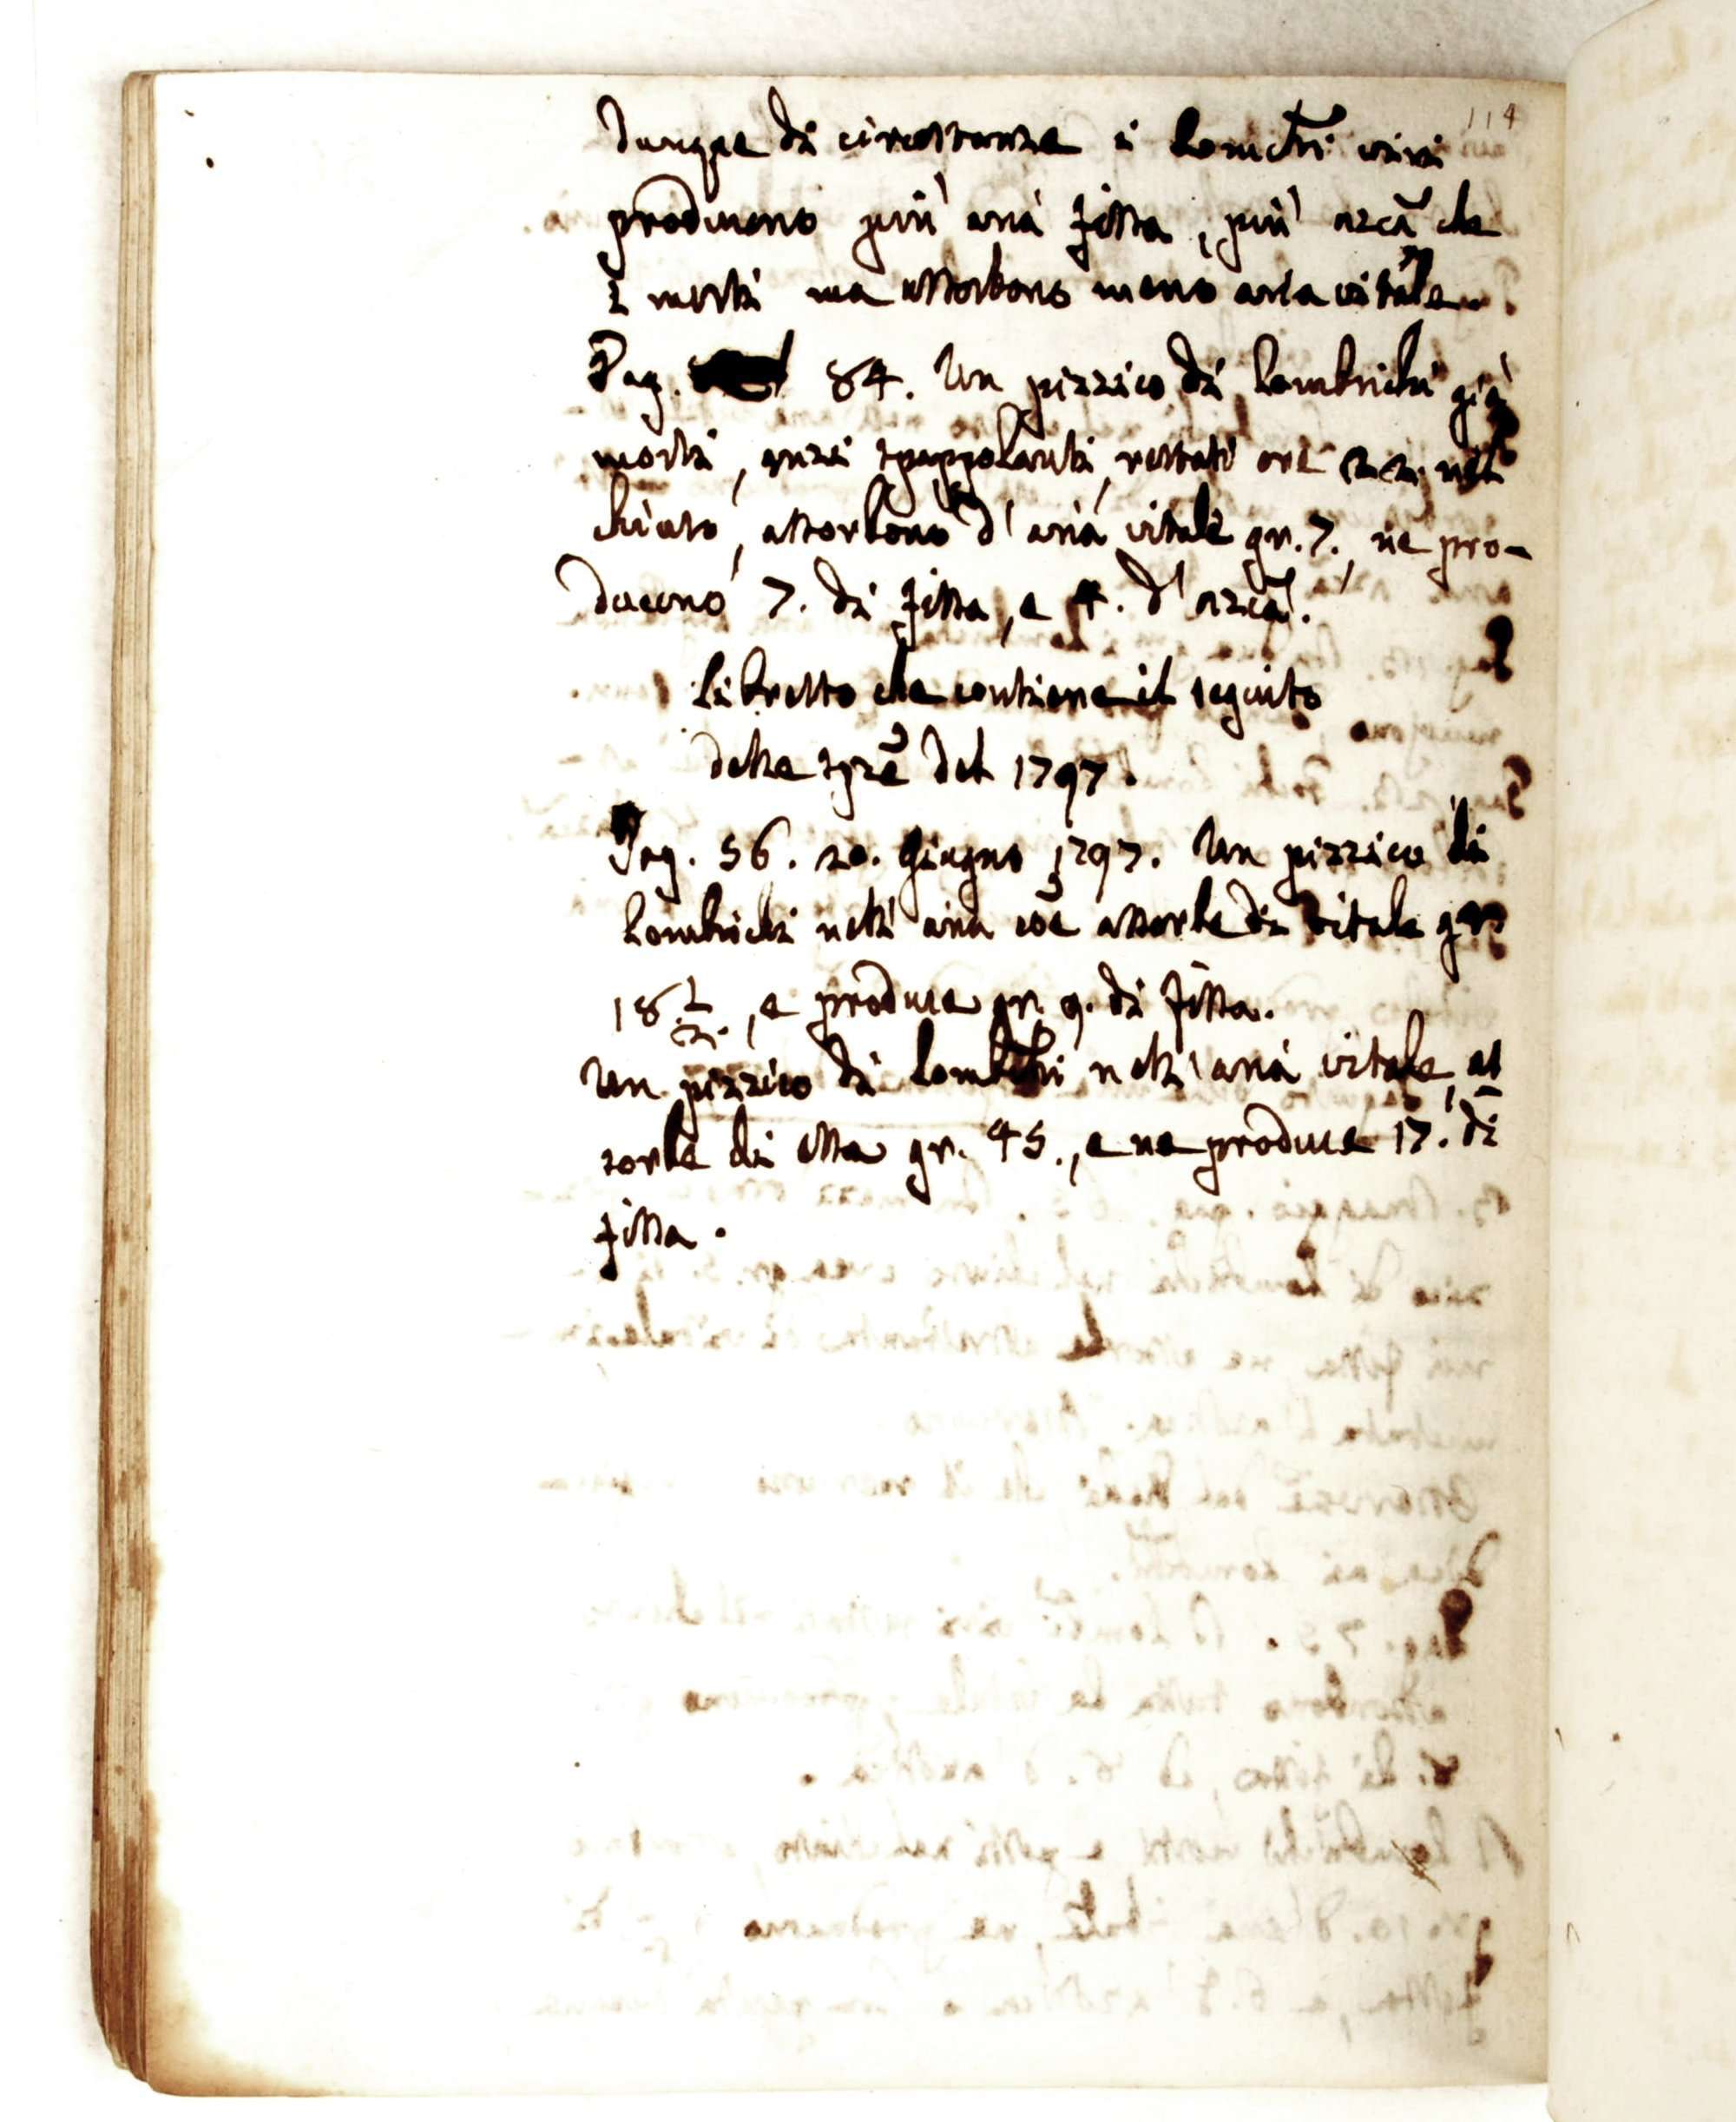 114
Dunque di circostanze i Lomchi vivi
producono più aria fissa, più azca che
i morti ma assorbono meno aria vitale.
Pag. 84. Un pizzico di Lombrichi già
morti, anzi spappolanti, restati ore 22. nel
chiuso, assorbono d'aria vitale gr. 7., ne pro-
ducono 7. di fissa, e 4. d'azca.
Libretto che contiene il seguito
delle spze del 1797.
Pag. 56. 20. Giugno 1797. Un pizzico di
Lombrichi nell'aria coe assorbe di vitale gr.
18 1/2., e produce gr. 9. di fissa.
Un pizzico di Lombchi nell'aria vitale as
sorbe di essa gr. 45., e ne produce 17. di
fissa.